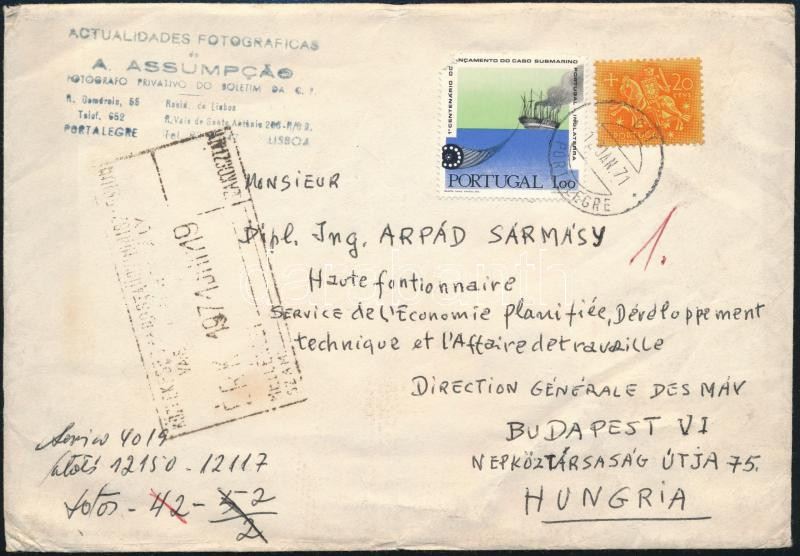 ACTUALIDADES FOTOGRAFICAS
de
A. ASSUMPÇÃO
FOTOGRAFO PRIVATIVO DO BOLETIM DA C. P.
R. Gomércio, 55
Resid. de Lisboa
Telef. 652
R. Vale de Santo António
PORTALEGRE
Tel.
LISBOA
1º CENTENÁRIO DO LANÇAMENTO DO CABO SUBMARINO
PORTUGAL INGLATERRA
PORTUGAL 1.00
20
CENT.
PORTUGAL
JAN. 71
PORTALEGRE
1971 JAN 19
MONSIEUR
Dipl. Ing. ARPÁD SÁRMÁSY
Haute fontionnaire
SERVICE de l'Économie planifiée, Développement
technique et l'Affaire de travaille
DIRECTION GÉNÉRALE DES MÁV
BUDAPEST VI
NEPKÖZTÁRSASÁG ÚTJA 75.
HUNGRIA
1.
Servico 4019
12150 - 12117
Fotos - 42 - 52
2